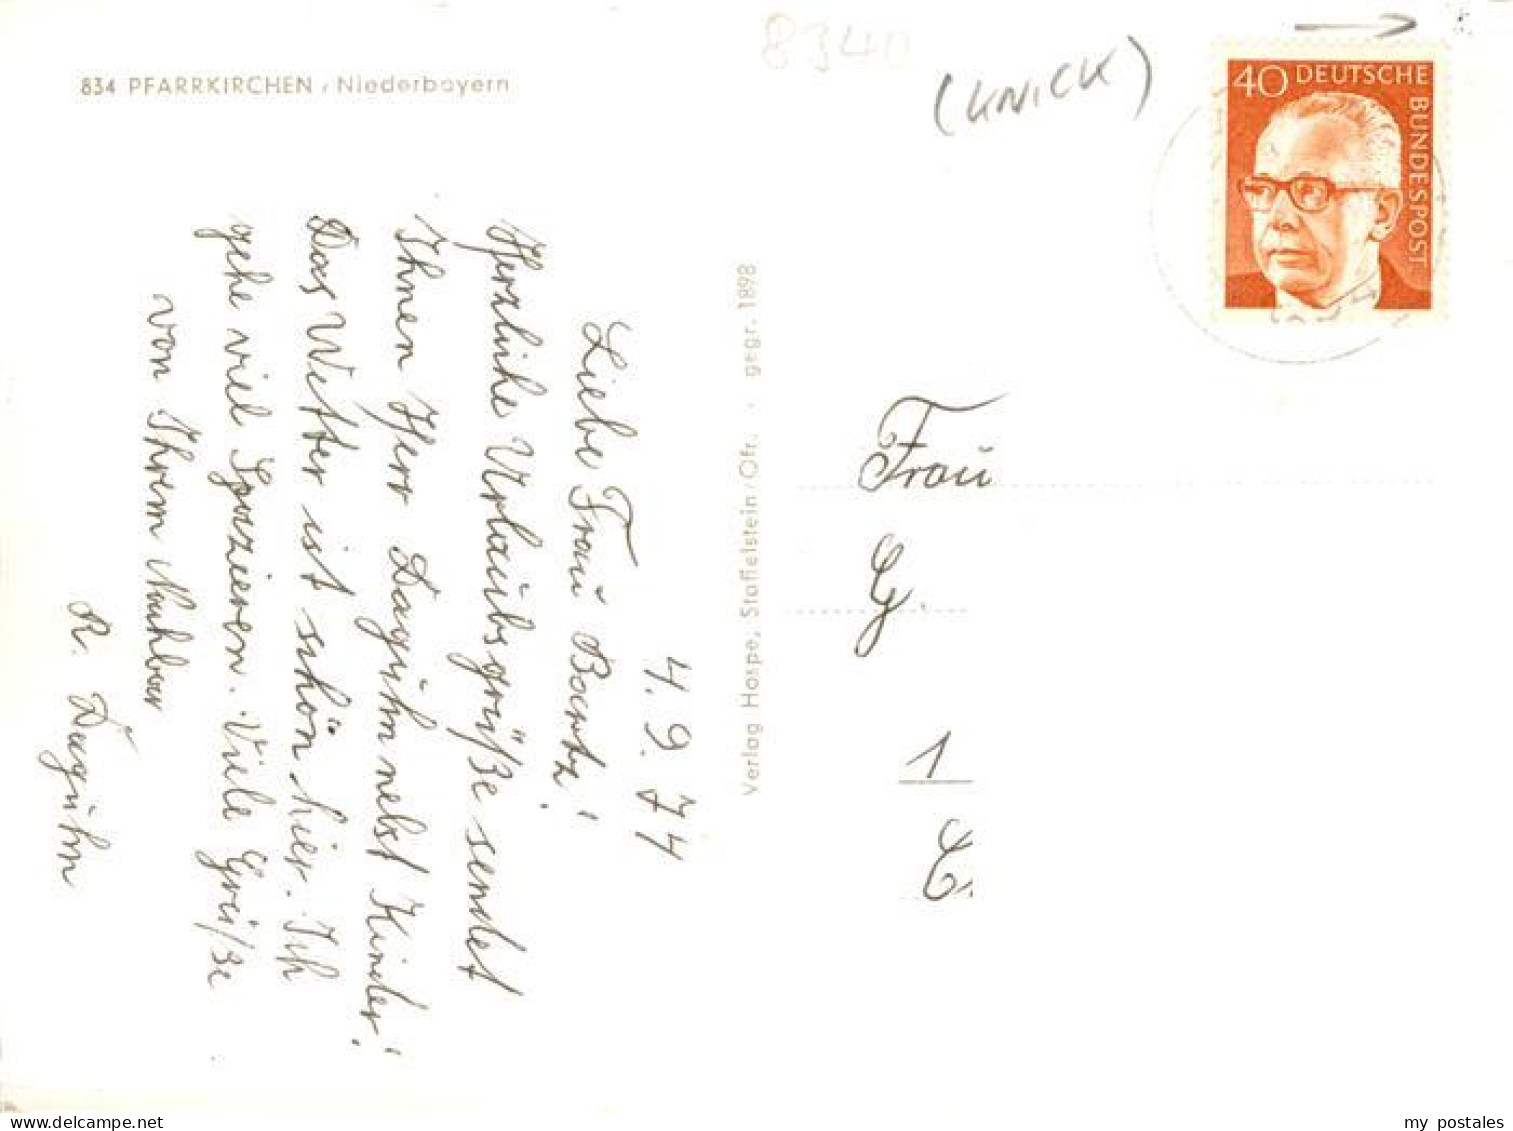 8340
(KNICK)
834 PFARRKIRCHEN, Niederbayern
40 DEUTSCHE BUNDESPOST
4.9.74
Liebe Frau Baartz!
Herzliche Urlaubsgrüße sendet
Ihnen Herr Daguhm nebst Kinder!
Das Wetter ist schön hier. Ich
gehe viel Spazieren. Viele Grüße
von Ihrem Nachbar
R. Daguhm
Verlag Haspe, Staffelstein/Ofr. · gegr. 1898
Frau
G.
1
C.
delcampe.net
my postales